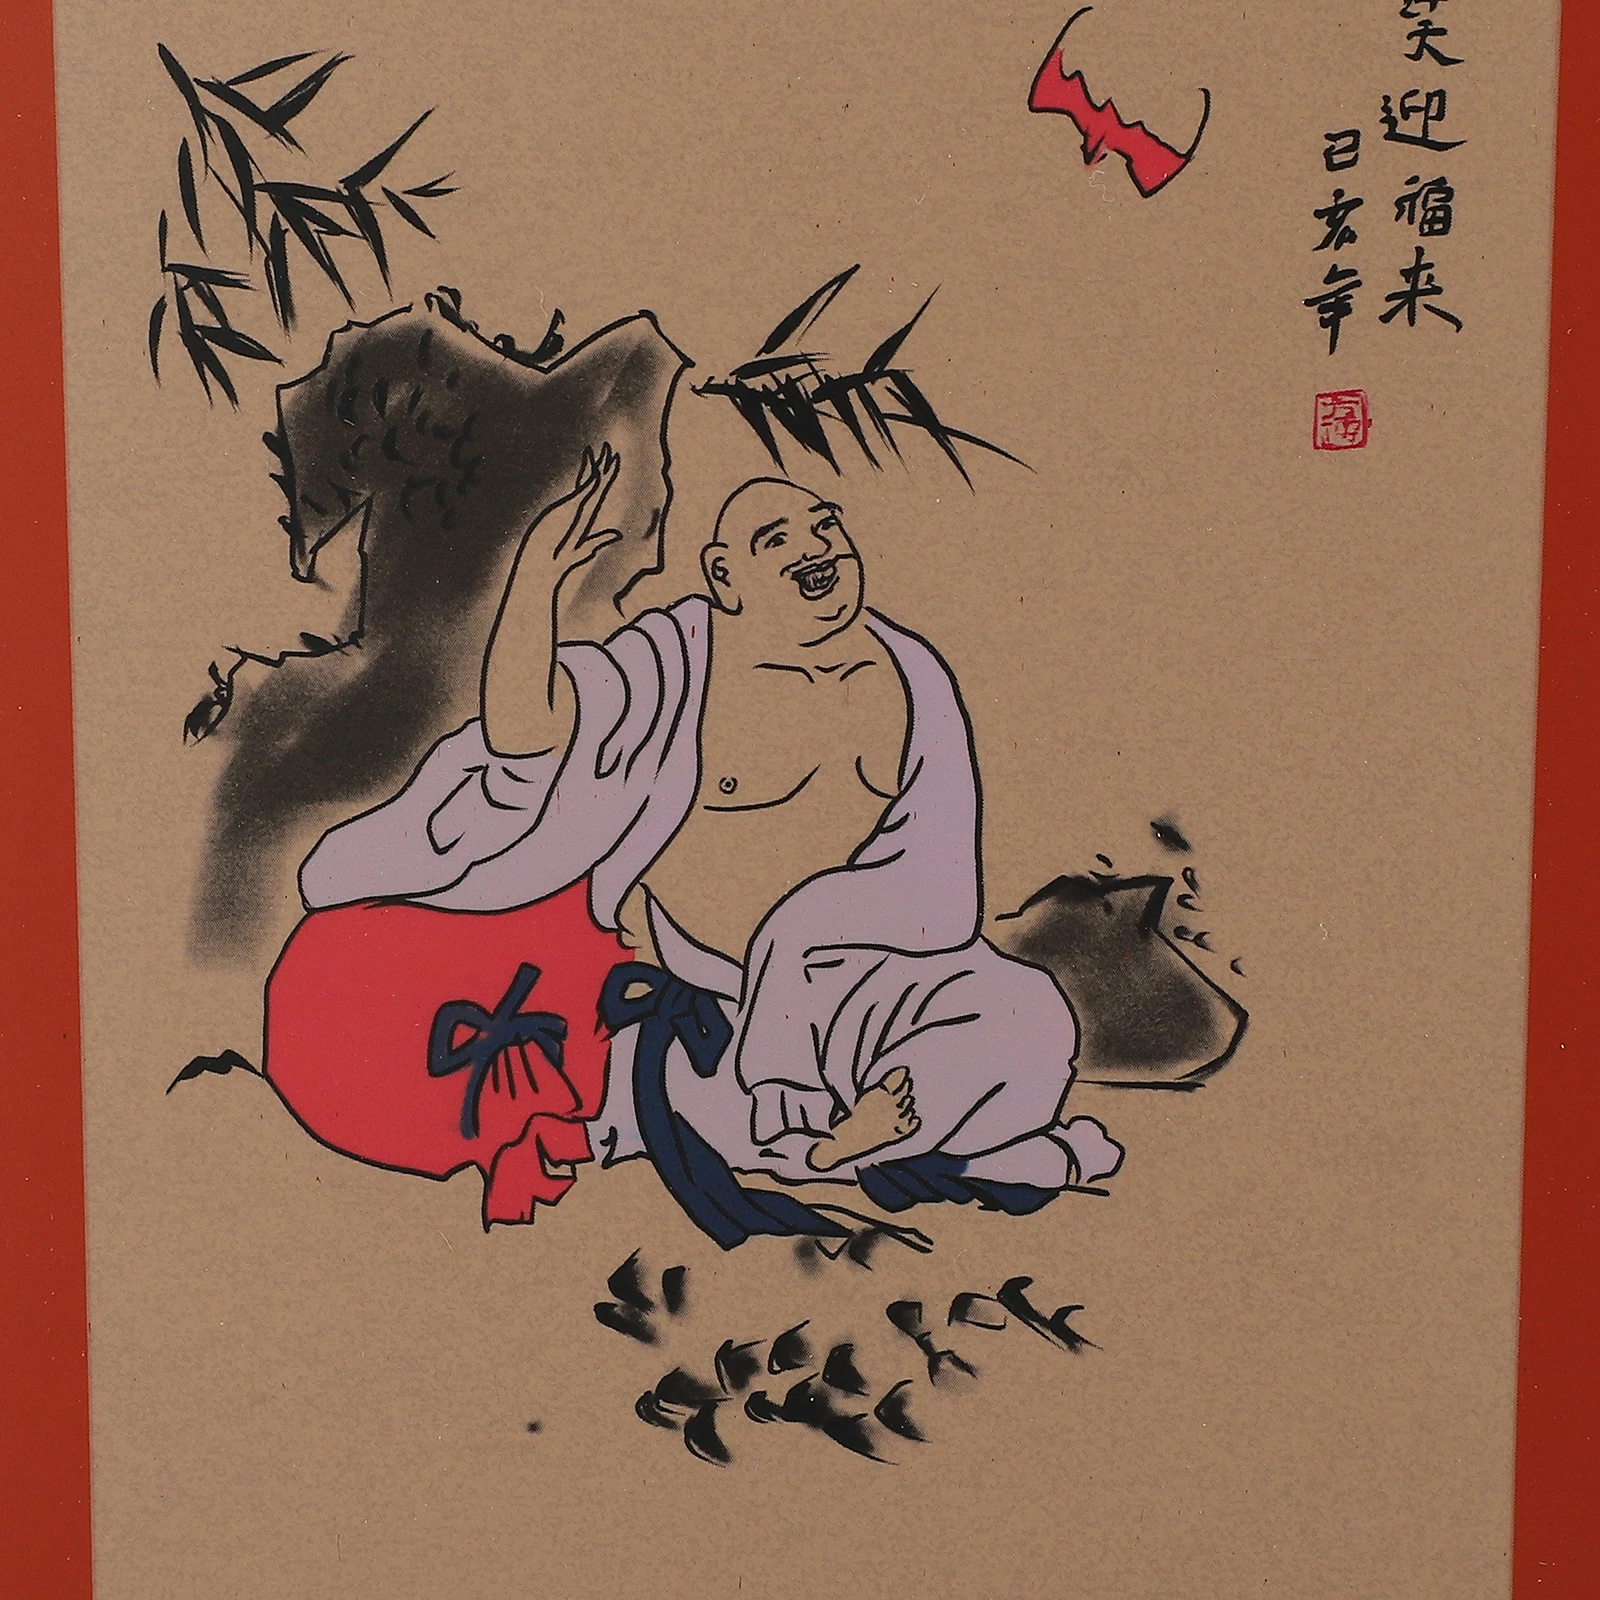 笑迎福来
己亥年